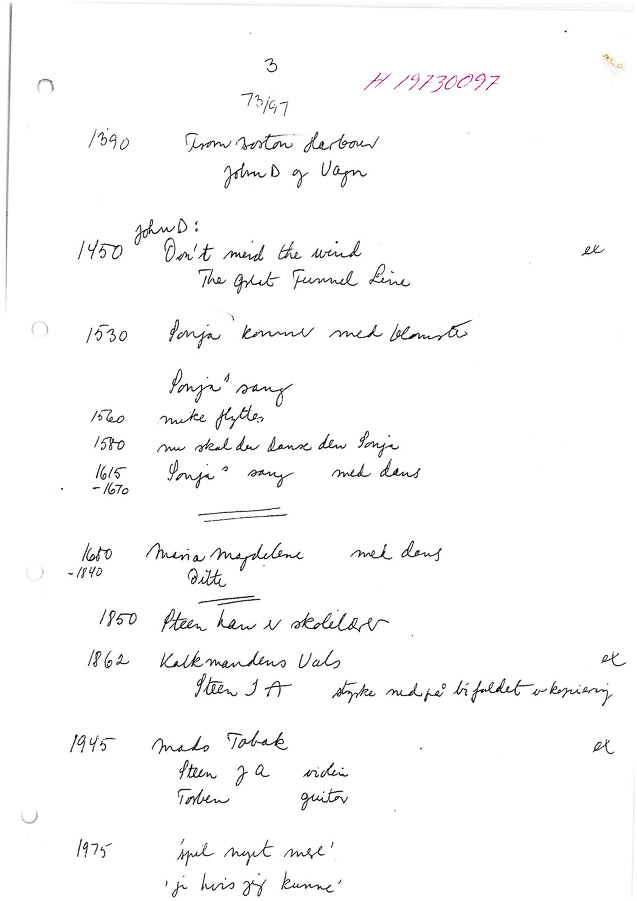 3
H 19730097
73/97
1390 From Boston Harbour
John D og Vagn
John D:
1450 Don't meid the wind ex
The Gret Tunnel Line
1530 Sonja kommer med blomster
Sonja's sang
1560 mike flyttes
1580 nu skal du danse den Sonja
1615 Sonja's sang med dans
-1670
1680 Maria Magdelene med dans
-1840 Ditte
1850 Steen han er skolelærer
1862 Kalkmandens Vals ex
Steen J A styrke ned på bifaldet v kopiering
1945 Mads Tobak ex
Steen J A violin
Torben guitar
1975 'spil noget mere'
'ja hvis jeg kunne'